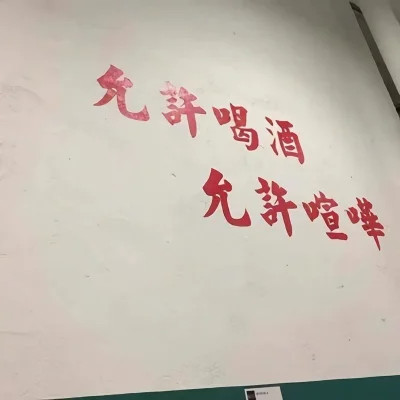 允許喝酒
允許喧嘩